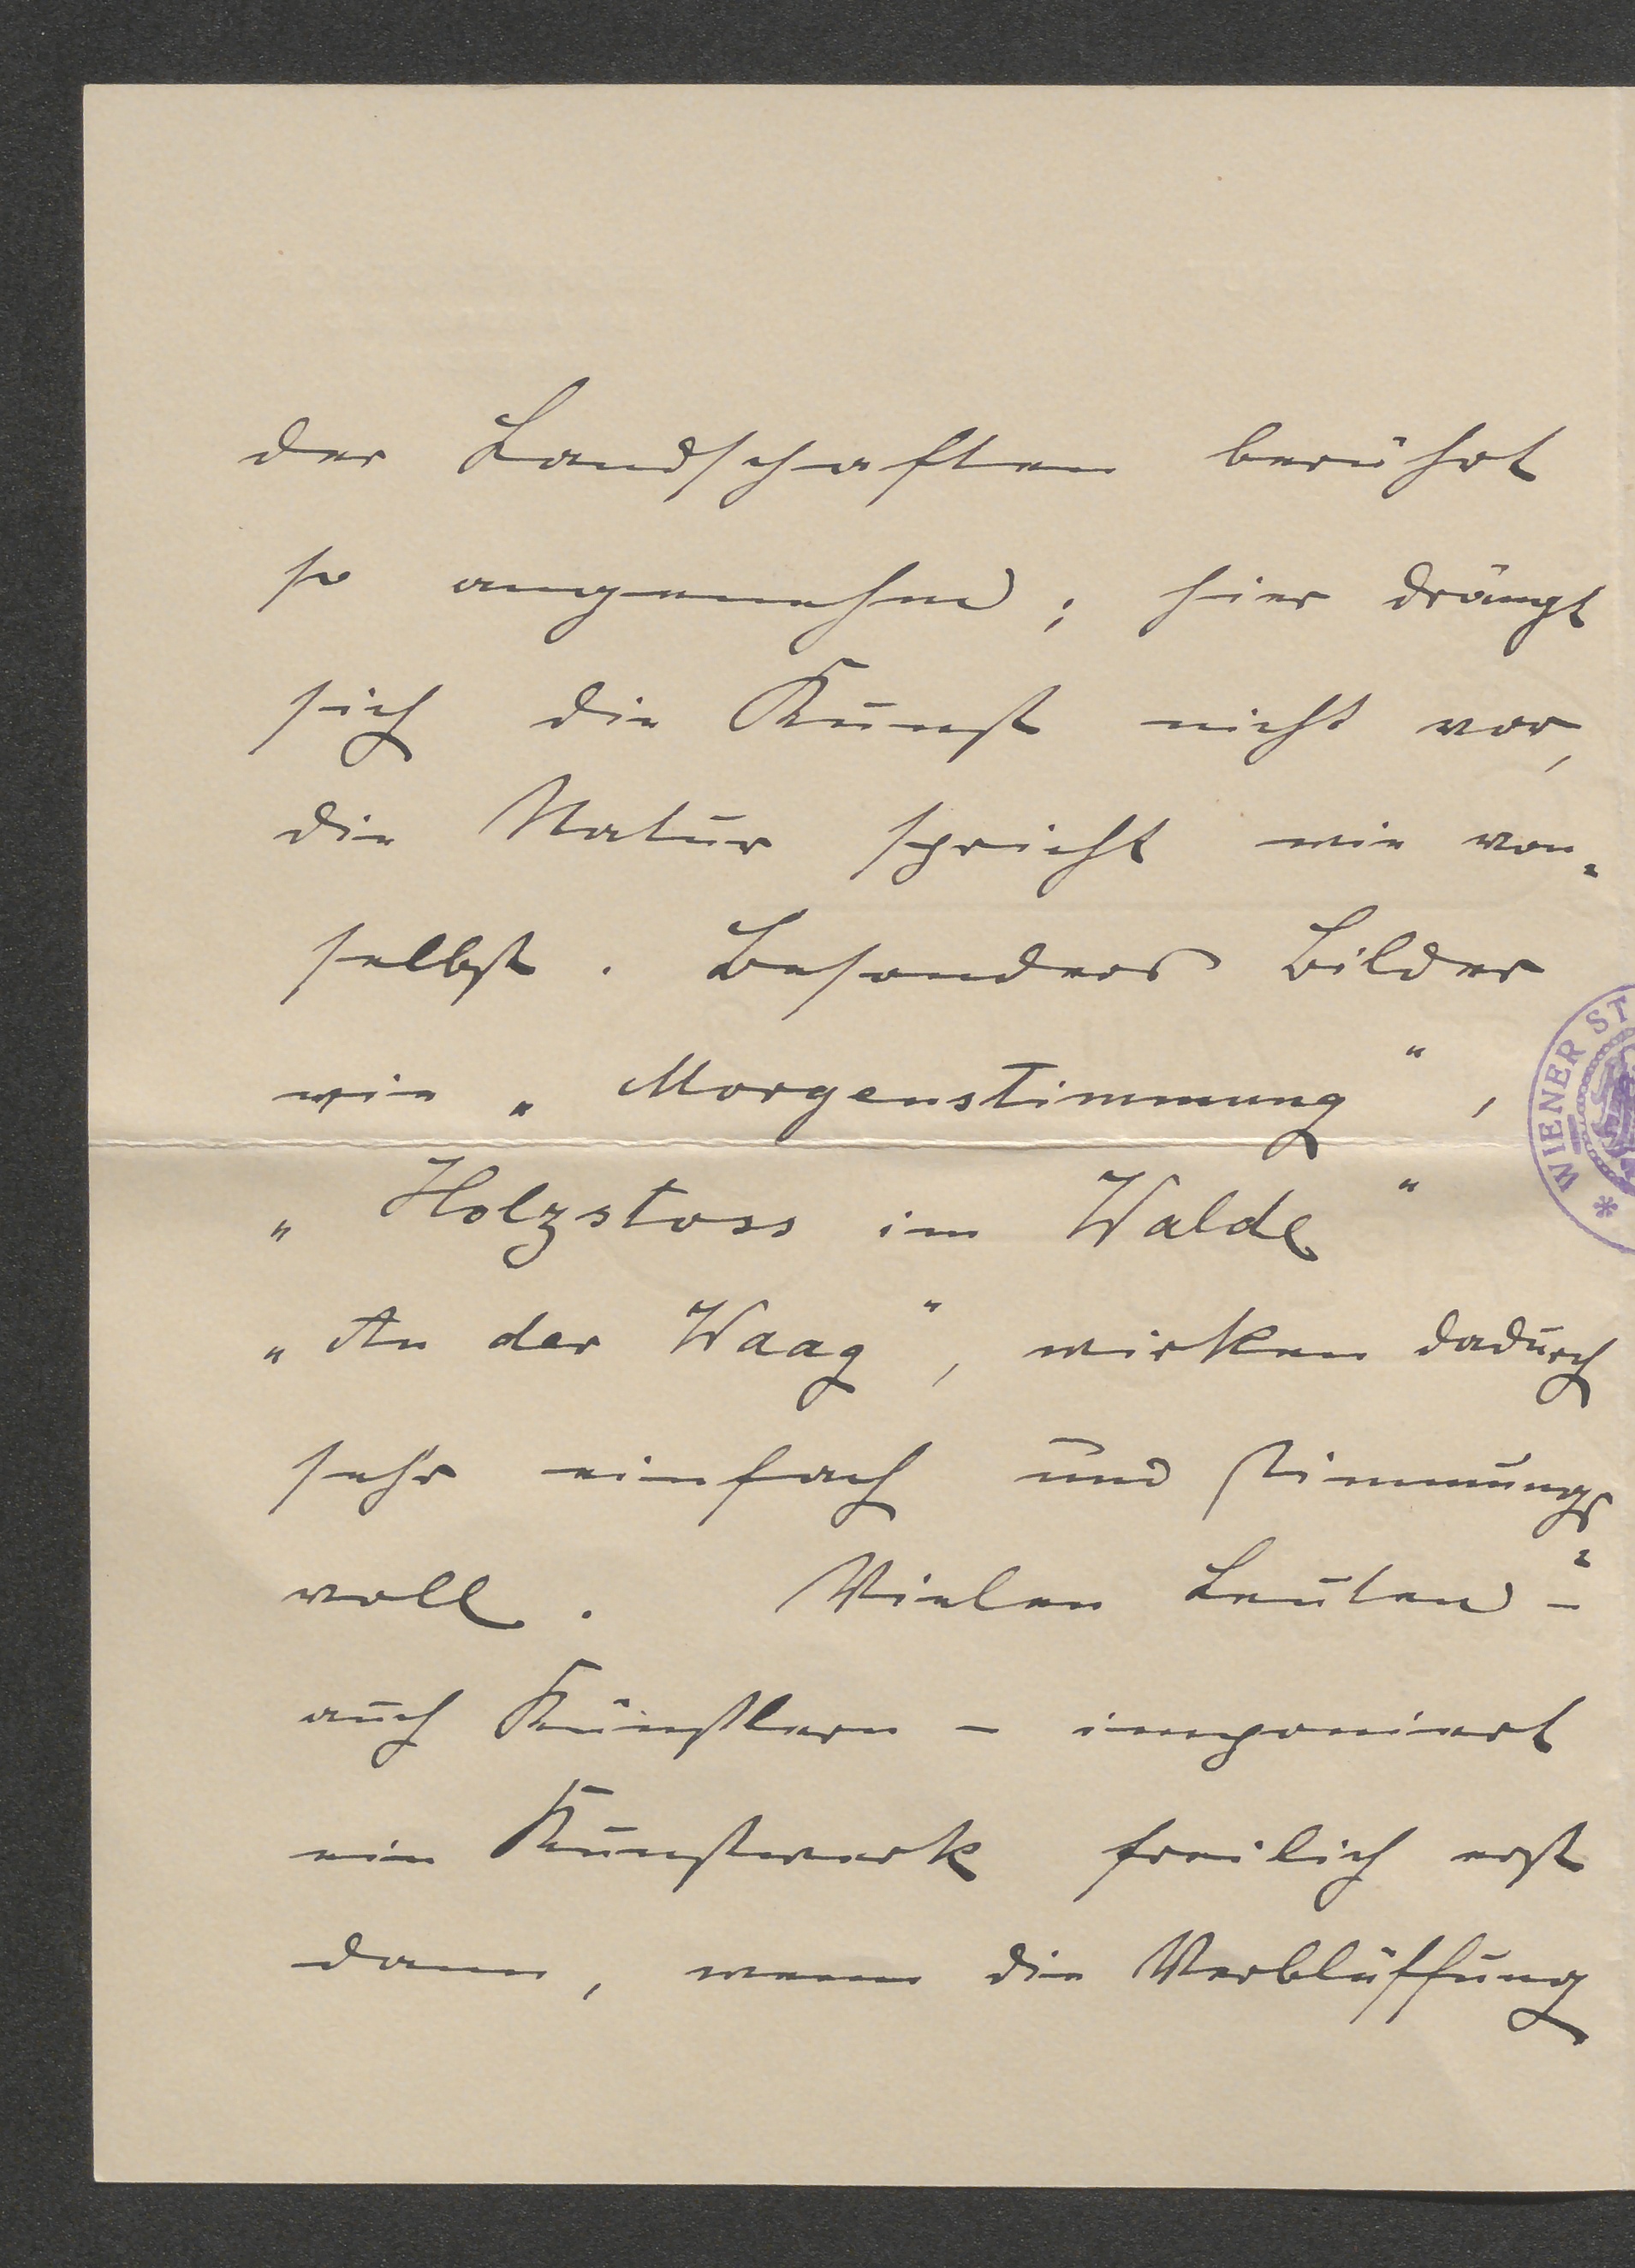 der Landschaften berührt
so angenehm; hier drängt
sich die Kunst nicht vor,
die Natur spricht wie von-
selbst. Besonders Bilder
wie „Morgenstimmung“,
„Holzstoss im Walde“
„An der Waag“, wirken dadurch
sehr einfach und stimmungs-
voll. Vielen Leuten –
auch Künstlern – imponiert
ein Kunstwerk freilich erst
dann, wenn die Verblüffung
* WIENER ST